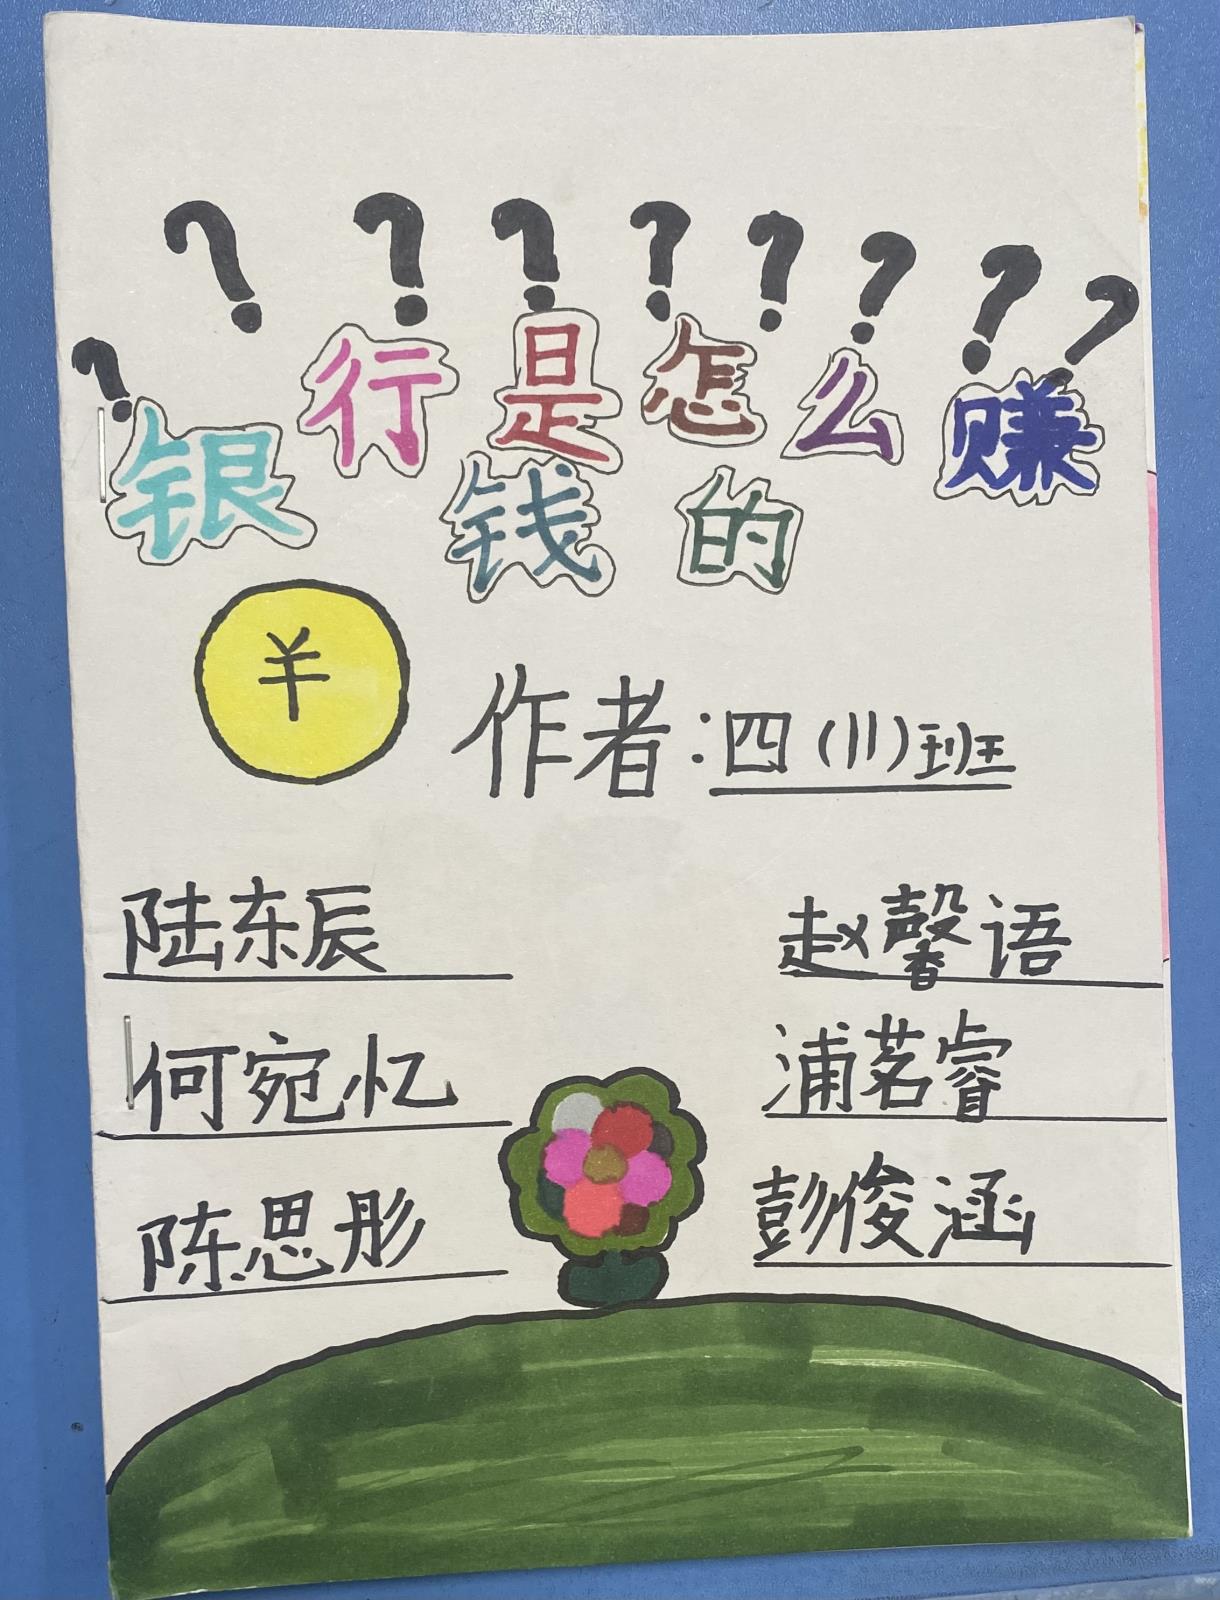 ? ? ? ? ? ? ? ? ?
银行是怎么赚
钱的
¥
作者:四(11)班
陆东辰 赵馨语
何宛忆 浦茗睿
陈思彤 彭俊涵